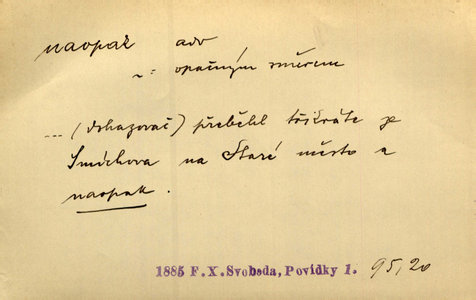 naopak adv
~ = opačným směrem
... (dohazovač) přeběhl třikráte ze
Smíchova na Staré město a
naopak.
1885 F. X. Svoboda, Povídky 1. 95,20